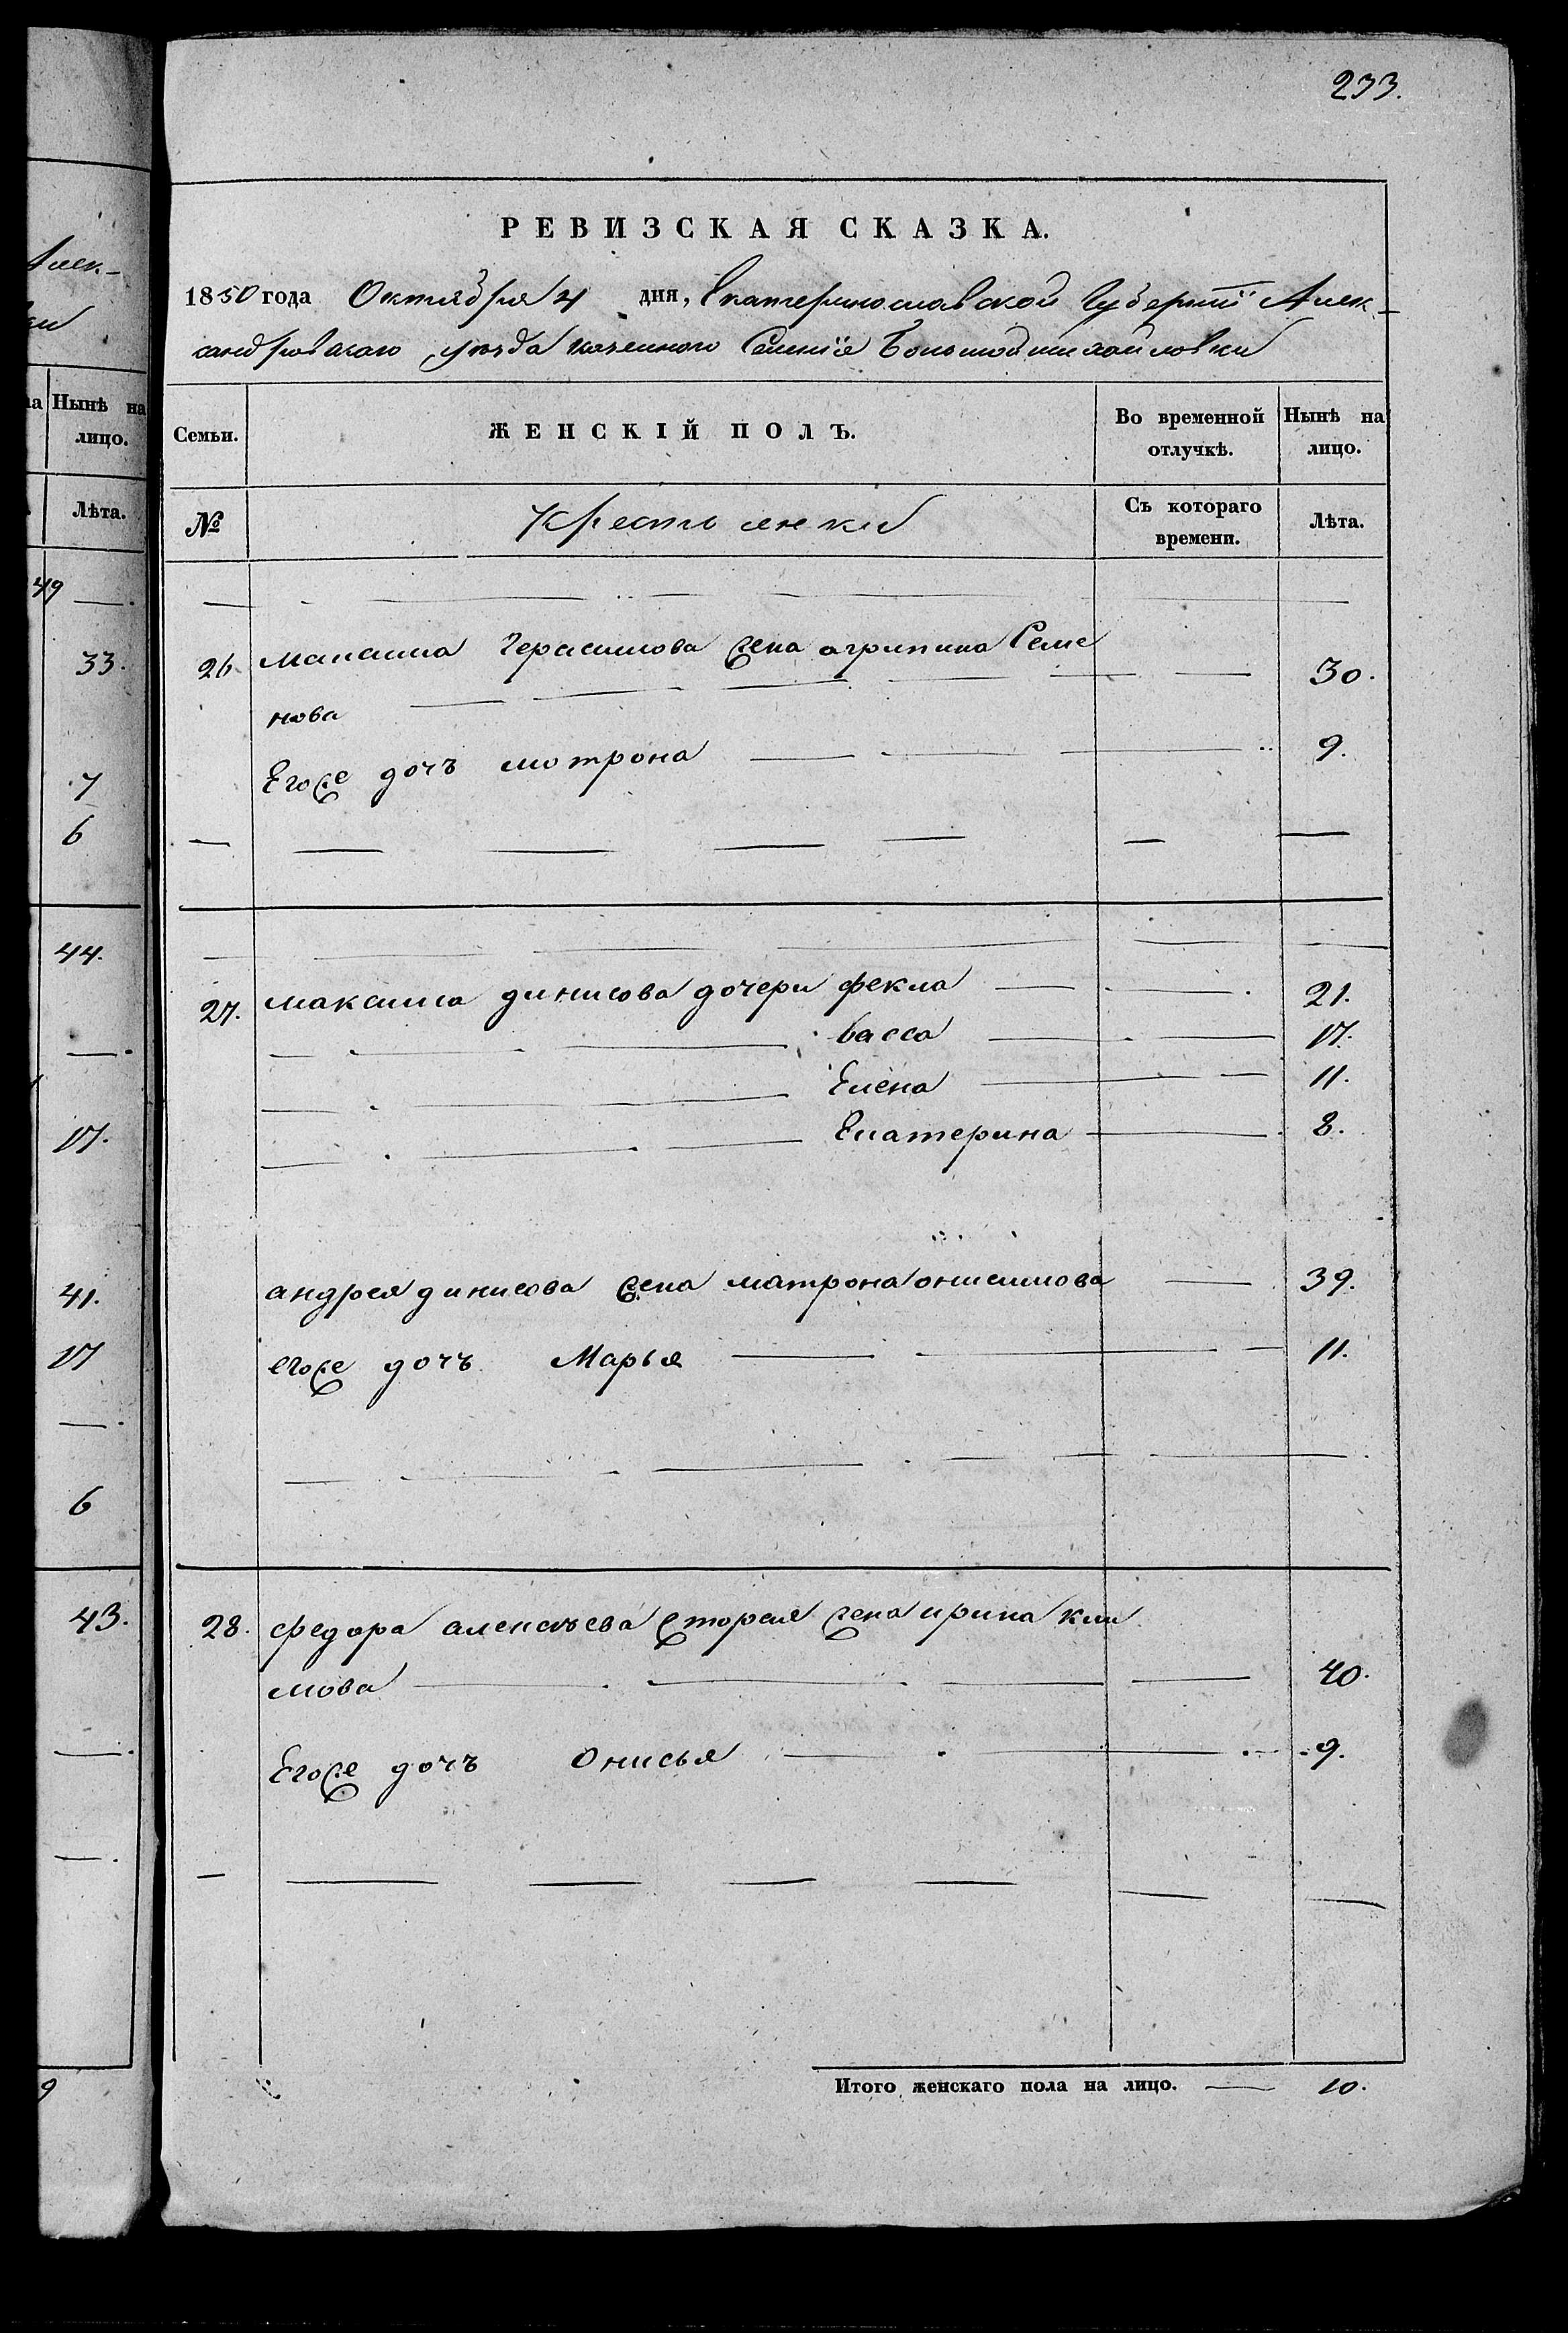 233.
РЕВИЗСКАЯ СКАЗКА.
1850 года Октября 4 дня, Екатеринославской Губернiи Алек-
сандровскаго уезда казенного Селенiе Большой михайловки
Семьи.
ЖЕНСКІЙ ПОЛЪ.
Во временной отлучкѣ.
Нынѣ на лицо.
№
Крестьянки
Съ котораго времени.
Лѣта.
26. Максима Герасимова жена агрипина Семе
нова 30.
Егоже дочъ мотрона 9.
27. максима динисова дочери фекла 21.
васса 17.
Елена 11.
Екатерина 8.
андрея динисова жена матрона онисимова 39.
егоже дочъ Марья 11.
28. федора алексѣева вторая жена ирина кли
мова 40.
Егоже дочъ Онисья 9.
Итого женскаго пола на лицо. 10.
Алек-
ки
Нынѣ на
лицо.
Лѣта.
49
33.
7
6
44.
17.
41.
17
6
43.
9